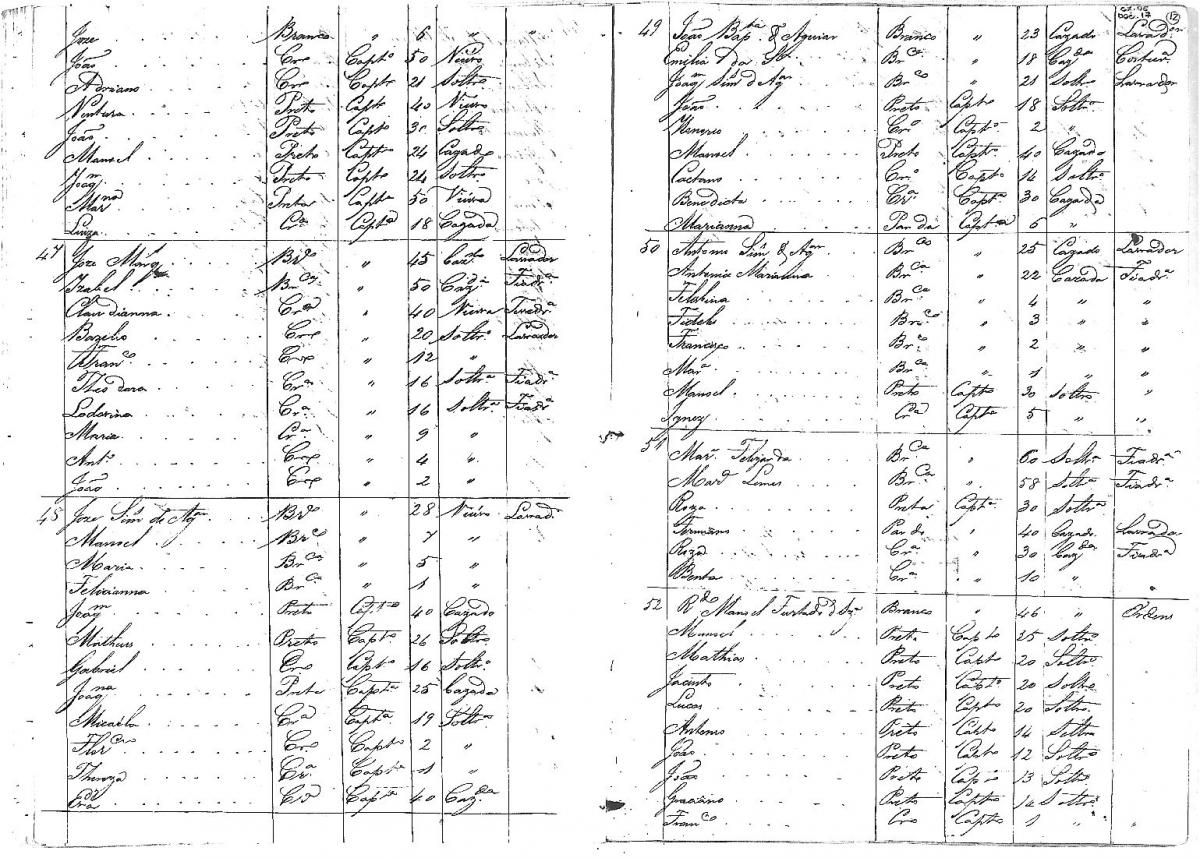 Joze Branco " 6 " "
João Cro Capto 50 Viuvo
Adriano Cro Capto 21 Soltro
Ventura Preto Capto 40 Viuvo
João Preto Capto 30 Soltro
Manoel Preto Capto 24 Cazado
Joaqm Preto Capto 24 Soltro
Marna Preta Capta 50 Viuva
Luiza Cra Capta 18 Cazada
47 Joze Brco " 45 Cazdo Lavrador
Izabel Brca " 50 Cazda Fiadra
Claudianna Cra " 40 Viuva Fiadra
Bazilio Cro " 20 Soltro Lavrador
Franco Cro " 12 "
Theodora Cra " 16 Soltra Fiadra
Cra " 16 Soltra Fiadra
Maria Cra " 9 "
Anto Cro " 4 "
João Cro " 2 "
Joze Sims de Agar Brco " 28 Viuvo Lavrad
Manoel Brco " 7 "
Maria Brca " 5 "
Felicianna Brca " 1 "
Joaqm Preto Capto 40 Cazado
Matheus Preto Capto 26 Soltro
Gabriel Cro Capto 16 Soltro
Joaqna Preta Capta 25 Cazada
Micaela Cra Capta 19 Soltra
Florcio Cro Capto 2 "
Thereza Cra Capta 1 "
Cra Capta 40 Cazda
CX.06
DOC.17 12
49 João Bapta d'Aguiar Branco " 23 Cazado Lavrador
Emilia Brca " 18 Cazda Costur
Joaqm Sims d'Agr Brco " 21 Soltro Lavrador
João Preto Capto 18 Soltro
Cro Capto 2 "
Manoel Preto Capto 40 Cazado
Caetano Cro Capto 14 Soltro
Benedicta Cra Capta 30 Cazada
Marianna Parda Capta 6 "
50 Antonio Sims d'Agar Brco 25 Cazado Lavrador
Antonia Marianna Brca " 22 Cazada Fiadra
Brca " 4 " "
Fidelis Brco " 3 " "
Francisco Brco " 2 " "
Mara Brca " 1 " "
Manoel Preto Capto 30 Soltro "
Ignez Cra Capta 5 " "
51 Mara Felizarda Brca " 60 Soltra Fiadra
Lemes Brca " 58 Soltra Fiadra
Roza Preta Capta 30 Soltra
Germano Pardo " 40 Cazado Lavrador
Roza Cra " 30 Cazda Fiadra
Benta Cra " 10 "
52 Rdo Manoel Furtado Branco " 46 " Ordens
Manoel Preto Capto 25 Soltro
Mathias Preto Capto 20 Soltro
Jacinto Preto Capto 20 Soltro
Lucas Preto Capto 20 Soltro
Antonio Preto Capto 14 Soltro
João Preto Capto 12 Soltro
João Preto Capto 13 Soltro
Graciano Preto Capto 14 Soltro
Franco Cro Capto 1 " "